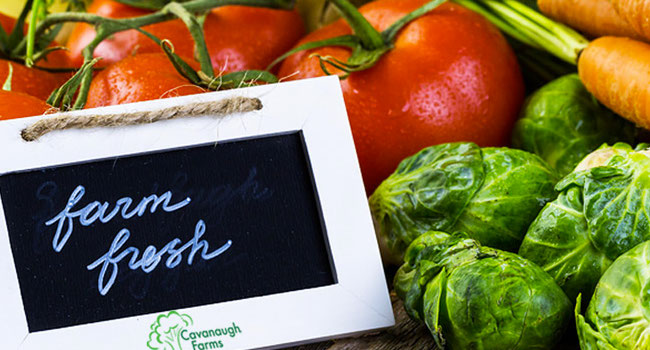 farm
fresh
Cavanaugh
Farms